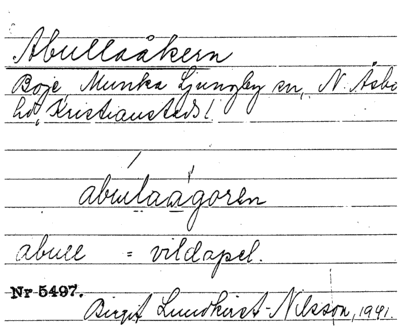 Abullaåkern
Boje, Munka Ljungby sn, N. Åsbo
hd, Kristianstads l.
abullaågoren
abull = vildapel.
Nr 5497.
Birgit Lundkvist-Nilsson, 1941.